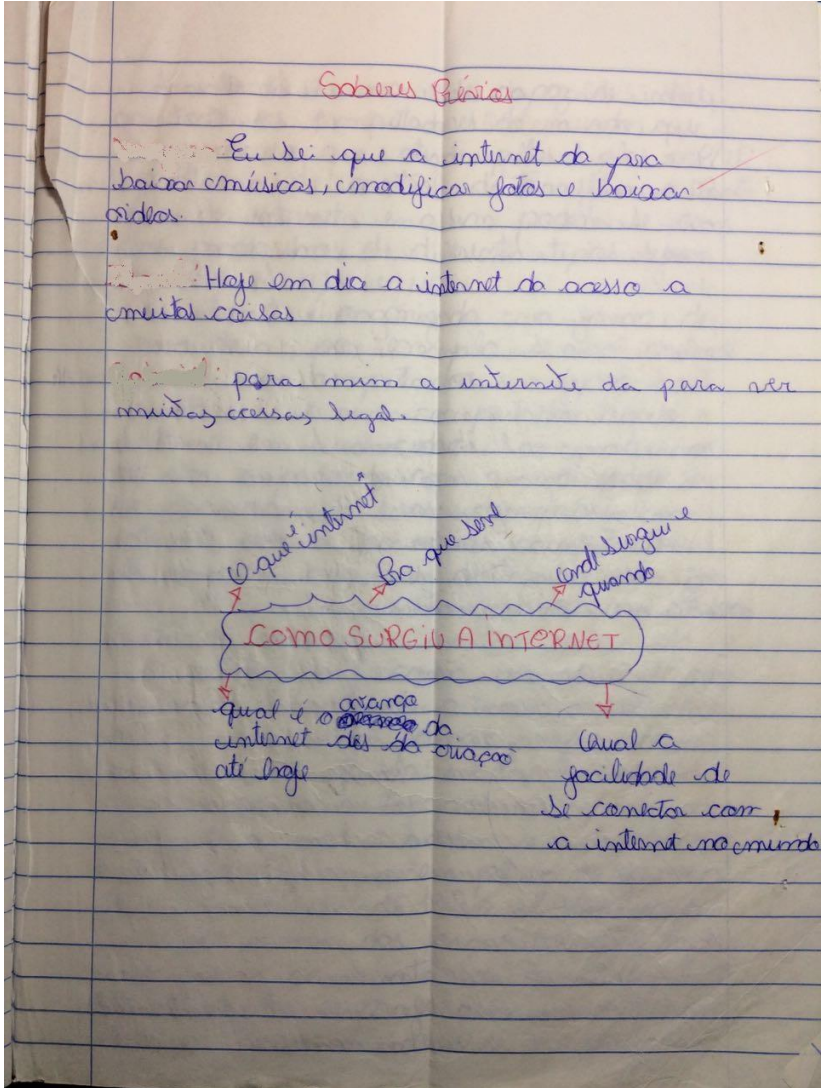 Saberes Prévios
Eu sei que a internet da pra
baixar músicas, modificar fotos e baixar
videos.
Hoje em dia a internet da acesso a
muitas coisas
para mim a internite da para ver
muitas coisas legal.
O que é internet
Pra que serve
onde surgiu e
quando
COMO SURGIU A INTERNET
qual é o avanço da
internet des da criação
até hoje
Qual a
facilidade de
se conector com
a internet no mundo